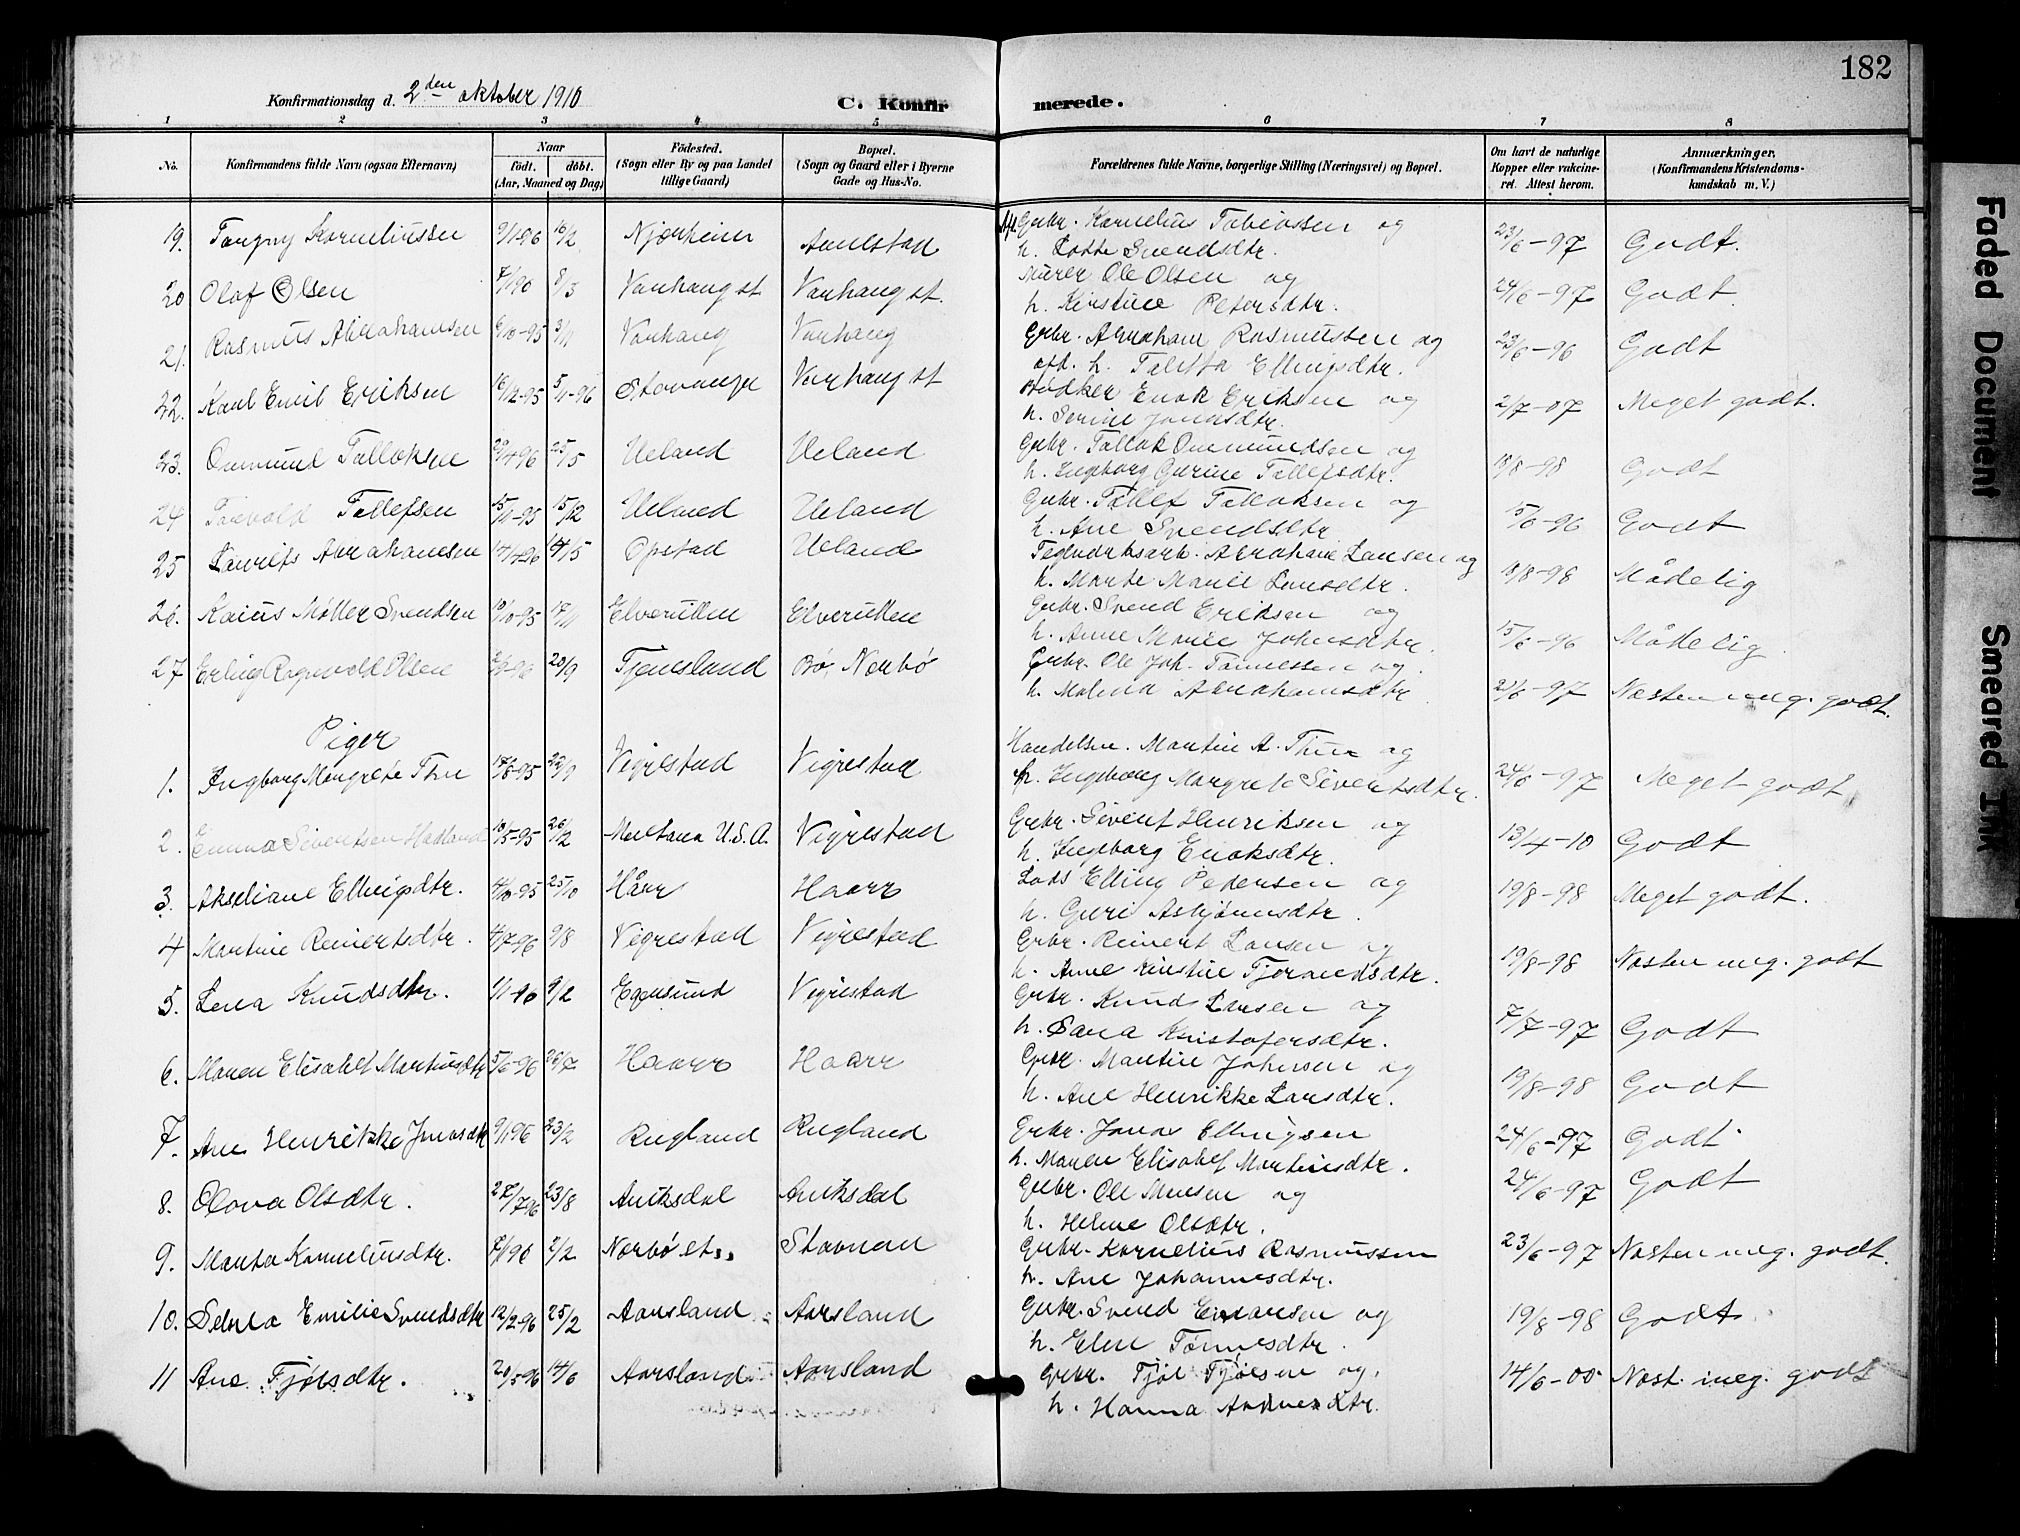 182
Konfirmationsdag d. 2den oktober 1910
C. Konfirmerede.
1 2 3 4 5 6 7 8
No.
Konfirmandens fulde Navn (ogsaa Efternavn)
Naar
födt. döbt.
(Aar, Maaned og Dag)
Födested.
(Sogn eller By og paa Landet
tillige Gaard)
Bopæl.
(Sogn og Gaard eller i Byerne
Gade og Hus-No.
Forældrenes fulde Navne, borgerlige Stilling (Næringsvei) og Bopæl.
Om havt de naturlige
Kopper eller vakcine-
ret. Attest herom.
Anmærkninger.
(Konfirmandens Kristendoms-
kundskab m. V.)
19. Torgny Korneliussen 9/1 96 16/2 Njærheim Aanestad Grbr. Kornelius Tobiassen og
h. Lotte Svendsdtr. 23/6-97 Godt.
20 Olaf Olsen 7/1 96 8/3 Varhaug st Varhaug st. Murer Ole Olsen og
h. Kirstine Petersdtr. 24/6-97 Godt
21. Rasmus Abrahamsen 6/10-95 3/11 Varhaug Varhaug Grbr. Abraham Rasmussen og
afd. h. Talitta Ellingsdtr. 23/6-96 Godt
22. Karl Emil Eriksen 16/12-95 5/1-96 Stavanger Varhaug st Bødker Enok Eriksen og
h. Serine Jonasdtr. 2/7-07 Meget godt.
23. Ommund Tollaksen 29/4 96 25/5 Ueland Ueland Grbr. Tollak Ommundsen og
h. Ingeborg Gurine Tollefsdtr. 18/8-98 Godt
24 Torvald Tollefsen 15/11-95 15/12 Ueland Ueland Grbr. Tollef Tollaksen og
h. Ane Svendsdtr 15/6-96 Godt
25 Laurits Abrahamsen 14/4-96 14/5 Opstad Ueland Teglverksarb. Abraham Larsen og
h. Marte Marie Larsdtr. 18/8-98 Mådelig
26. Kaius Møller Svendsen 10/10-95 17/11 Elverutten Elverutten Grbr. Svend Eriksen og
h. Anne Marie Johnsdtr. 15/6-96 Mådelig.
27 Erling Ragnvald Olsen 96 20/9 Tjensland Bø, Nærbø Grbr. Ole Joh. Tønnessen og.
h. Malena Abrahamsdtr 21/6-97 Næsten meg. godt.
Piger
1. Ingborg Margrete Thu 14/8-95 22/9 Vigrestad Vigrestad Handelsm. Martin A. Thu og
h. Ingeborg Margrete Sivertsdtr. 24/6-97 Meget godt
2. Emma Sivertsen Hadland 18/5-95 26/12 Montana U.S.A. Vigrestad Grbr. Sivert Henriksen og
h. Ingeborg Enoksdtr. 13/4-10 Godt
3. Akseliane Ellingsdtr. 4/10-95 25/10 Hårr Haarr Lods Elling Pedersen og
h. Guri Asbjørnsdtr. 19/8-98 Meget godt.
4 Martine Reinertsdtr. 4/7-96 9/8 Vigrestad Vigrestad Grbr. Reinert Larsen og
h. Anne Kirstine Tjerandsdtr. 19/8-98 Næsten meg. godt
5. Lena Knudsdtr. 1/1-96 9/2 Egersund Vigrestad Grbr. Knud Larsen og
h. Sara Kristofersdtr. 7/7-97 Godt
6. Maren Elisabet Martinsdtr 5/6-96 26/7 Haarr Haarr Grbr. Martin Johnsen og
h. Ane Henrikke Larsdtr. 19/8-98 Godt
7. Ane Henrikke Jonasdtr 9/1 96 23/2 Rugland Rugland Grbr. Jonas Ellingsen
h. Maren Elisabet Martinsdtr. 24/6-97 Godt
8. Olava Olsdtr. 27/7 96 23/8 Auksdal Auksdal Grbr. Ole Monsen og
h. Helene Olsdtr. 24/6-97 Godt
9. Marta Korneliusdtr. 7/1 96 7/2 Nærbø st., Stavnan Grbr. Kornelius Rasmussen
h. Ane Johannesdtr. 23/6-97 Næsten meg. godt.
10. Selma Emilie Svendsdtr 12/2-96 25/2 Aarsland Aarsland Grbr. Svend Einarsen og
h. Elen Tønnesdtr. 19/8-98 Godt.
11 Ane Tjølsdtr. 20/5-96 14/6 Aarsland Aarsland Grbr. Tjøl Tjølsen og,
h. Hanna Andersdtr. 14/6-00 Næst. meg. godt
Faded Document
Smeared Ink